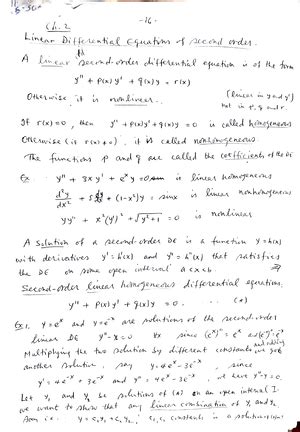 -16-
Ch. 2
Linear Differential Equations of second order.
A linear second-order differential equation is of the form
y" + p(x)y' + q(x)y = r(x)
Otherwise it is nonlinear. (linear in y and y'
not in p, q and r.
If r(x)=0, then y" + p(x)y' + q(x)y = 0 is called homogeneous
Otherwise (is r(x)≠0), it is called nonhomogeneous.
The functions p and q are called the coefficients of the DE
Ex. y" + 3xy' + e^x y = 0 is linear homogeneous
d²y/dx² + 5 dy/dx + (1-x²)y = sinx is linear nonhomogeneous
yy" + x³(y')² + √(y²+1) = 0 is nonlinear
A solution of a second-order DE is a function y=h(x)
with derivatives y'=h'(x) and y"=h"(x) that satisfies
the DE on some open interval a<x<b.
Second-order linear homogeneous differential equations.
y" + p(x)y' + q(x)y = 0. ... (*)
Ex1. y=e^x and y=e^-x are solutions of the second-order
linear DE y"-y=0 ∀x since (e^x)"=e^x and (e^-x)"=e^-x
Multiplying the two solution by different constants and adding we get
another solution, say y=4e^x-3e^-x, since
y'=4e^x+3e^-x and y"=4e^x-3e^-x, we have y"-y=0.
Let y₁ and y₂ be solutions of (*) on an open interval I
we want to show that any linear combination of y₁ and y₂
say i.e. y=c₁y₁+c₂y₂, c₁, c₂ constants is a solution